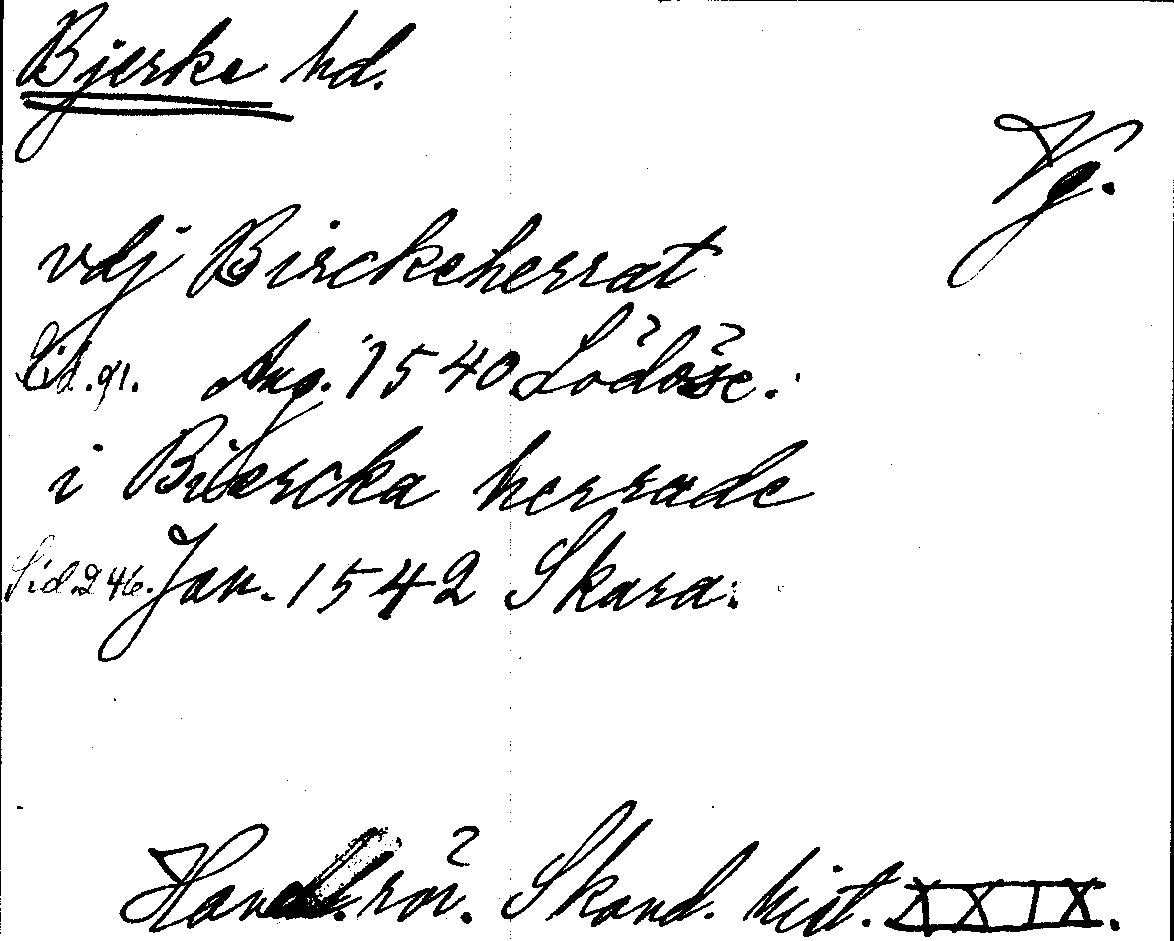 Bjerke hd.
Vg.
vdj Birckeherrat
Sid. 91. Aug. 1540 Lödöse.
i Biercka herrade
Sid. 246. Jan. 1542 Skara.
Handl. rör. Skand. hist. XXIX.